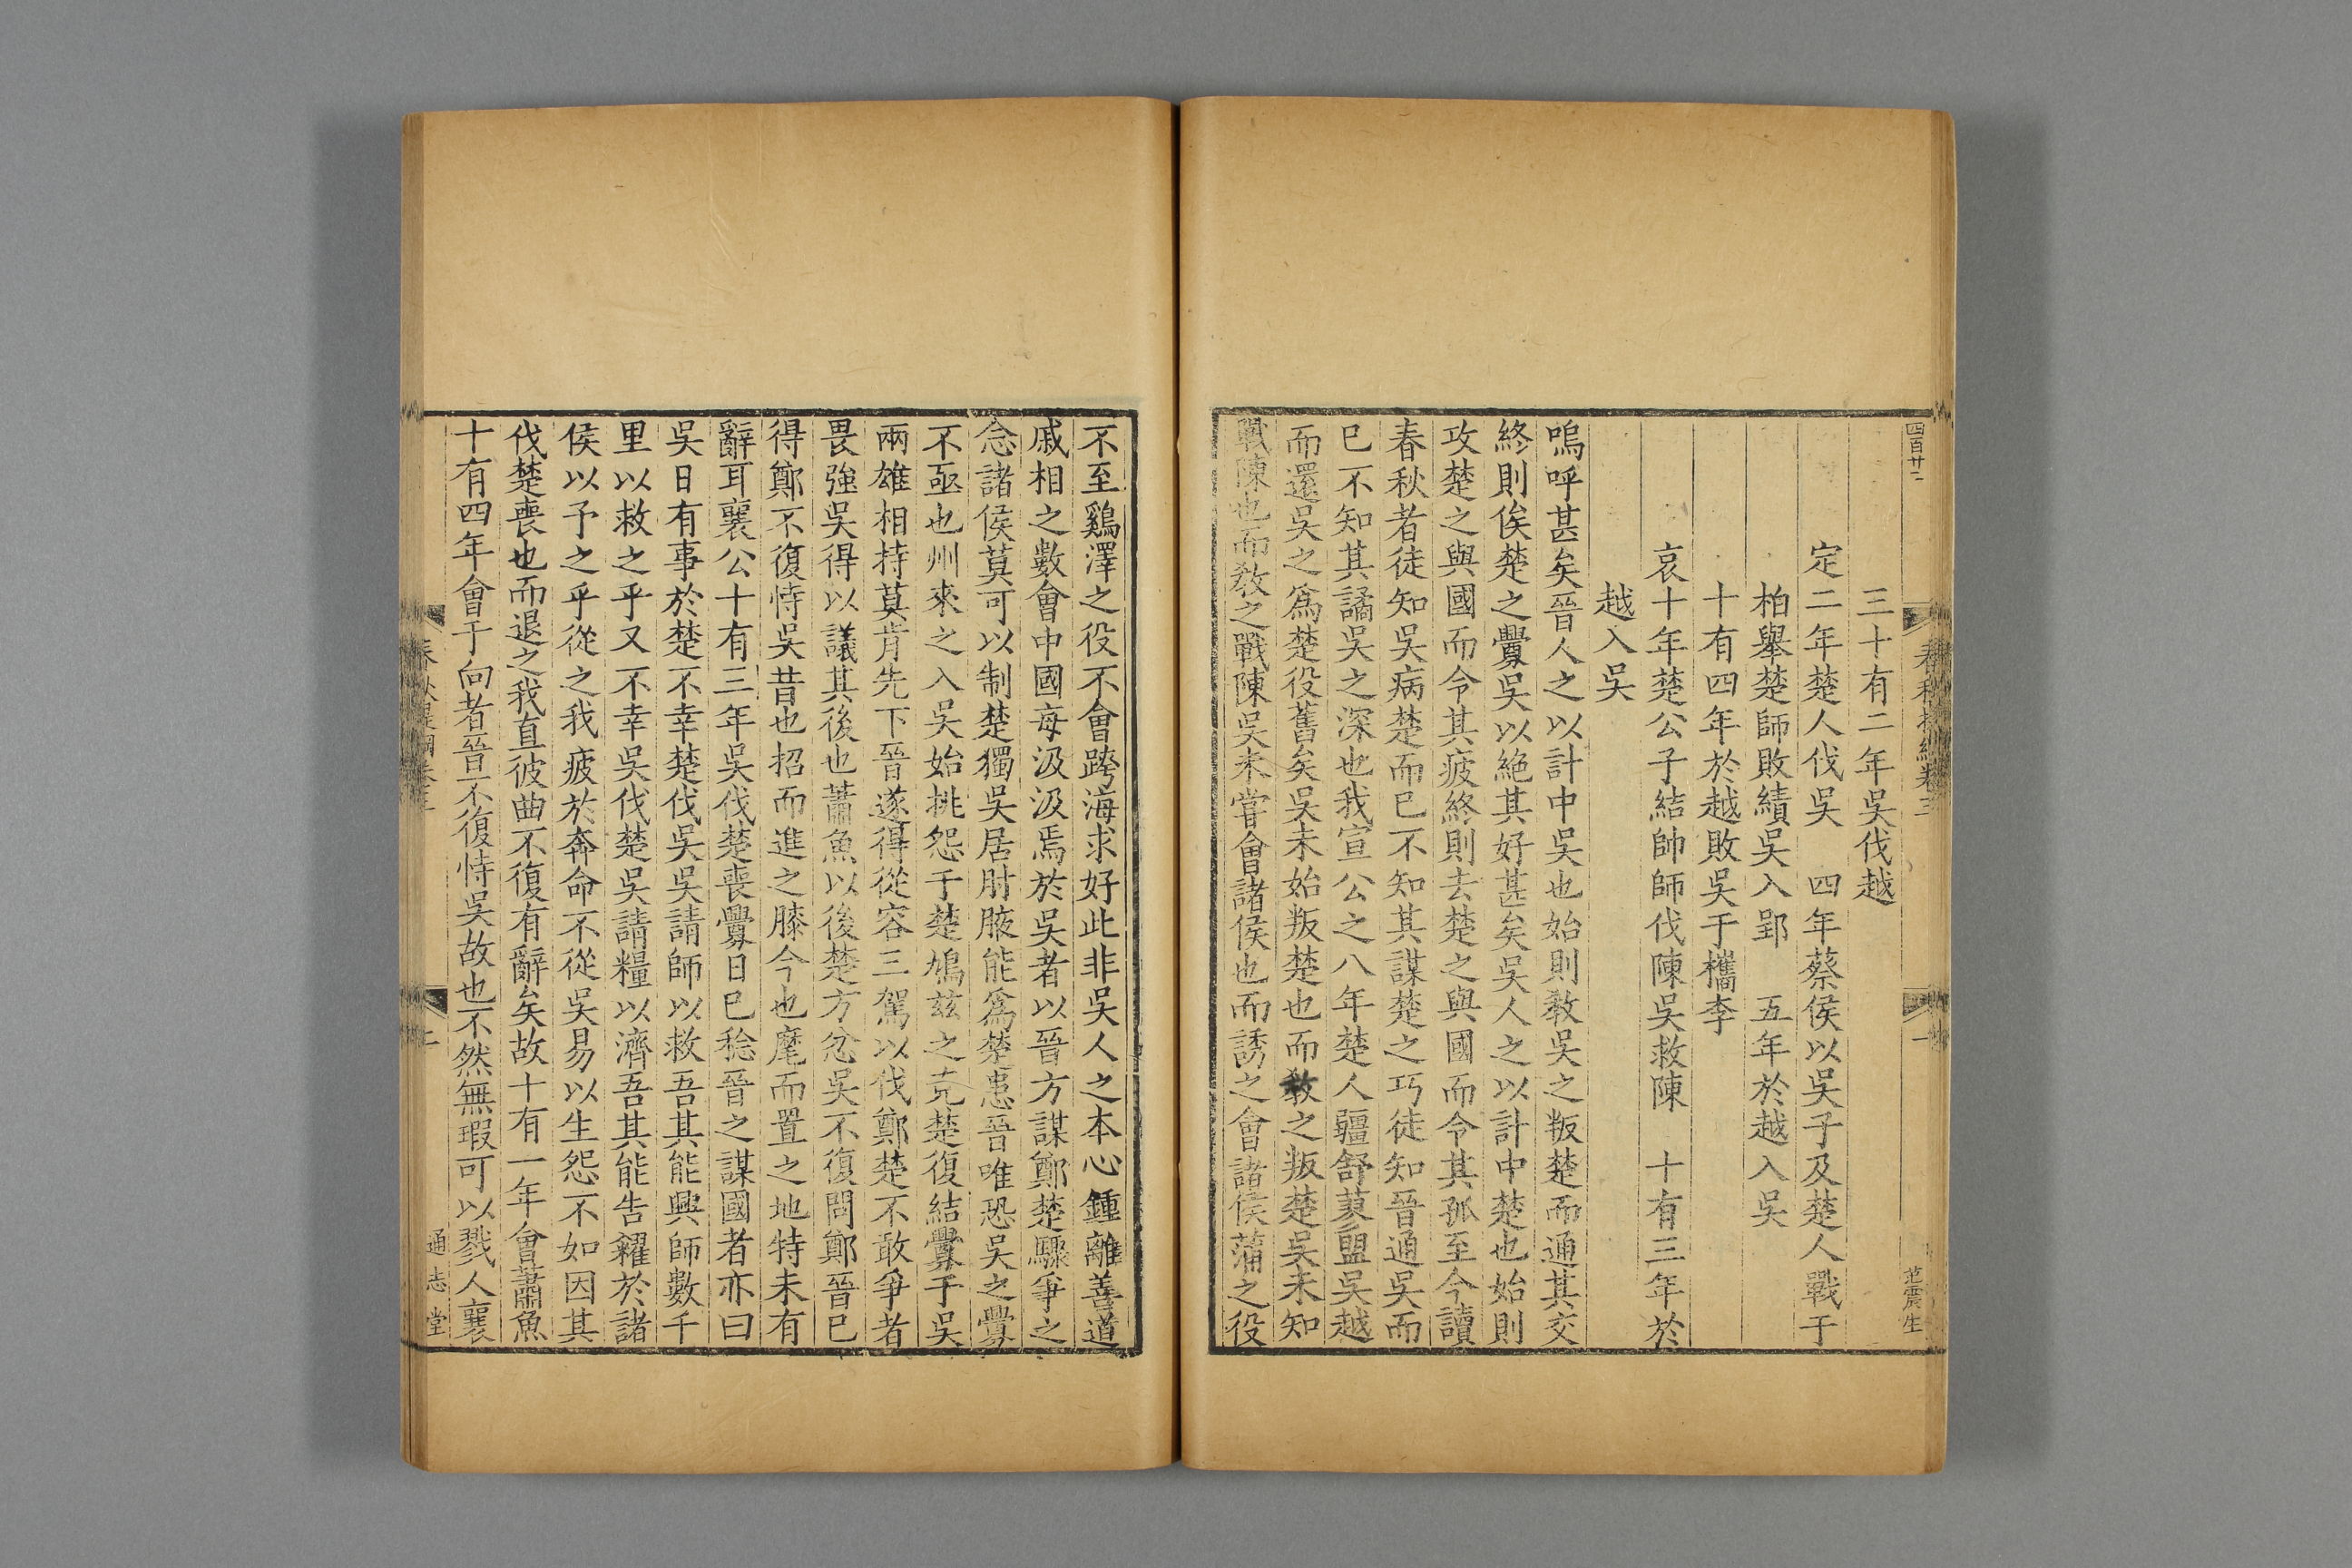 四百廿二
春秋提綱卷三
一
范震生
三十有二年吳伐越
定二年楚人伐吳　四年蔡侯以吳子及楚人戰于
柏舉楚師敗績吳入郢　五年於越入吳
十有四年於越敗吳于檇李
哀十年楚公子結帥師伐陳吳救陳　十有三年於
越入吳
嗚呼甚矣晉人之以計中吳也始則教吳之叛楚而通其交
終則俟楚之釁吳以絶其好甚矣吳人之以計中楚也始則
攻楚之與國而令其疲終則去楚之與國而令其孤至今讀
春秋者徒知吳病楚而已不知其謀楚之巧徒知晉通吳而
已不知其譎吳之深也我宣公之八年楚人疆舒蓼盟吳越
而還吳之爲楚役舊矣吳未始叛楚也而敎之叛楚吳未知
戰陳也而敎之戰陳吳未甞會諸侯也而誘之會諸侯蒲之役
不至鷄澤之役不會跨海求好此非吳人之本心鍾離善道
戚相之數會中國每汲汲焉於吳者以晉方謀鄭楚驟爭之
念諸侯莫可以制楚獨吳居肘腋能爲楚患晉唯恐吳之釁
不亟也州來之入吳始挑怨于楚鳩玆之克楚復結釁于吳
兩雄相持莫肯先下晉遂得從容三駕以伐鄭楚不敢爭者
畏強吳得以議其後也蕭魚以後楚方忿吳不復問鄭晉已
得鄭不復恃吳昔也招而進之膝今也麾而置之地特未有
辭耳襄公十有三年吳伐楚喪釁日已稔晉之謀國者亦曰
吳日有事於楚不幸楚伐吳吳請師以救吾其能興師數千
里以救之乎又不幸吳伐楚吳請糧以濟吾其能告糴於諸
侯以予之乎從之我疲於奔命不從吳易以生怨不如因其
伐楚喪也而退之我直彼曲不復有辭矣故十有一年會蕭魚
十有四年會于向者晉不復恃吳故也不然無瑕可以戮人襄
春秋提綱卷三
二
通志堂